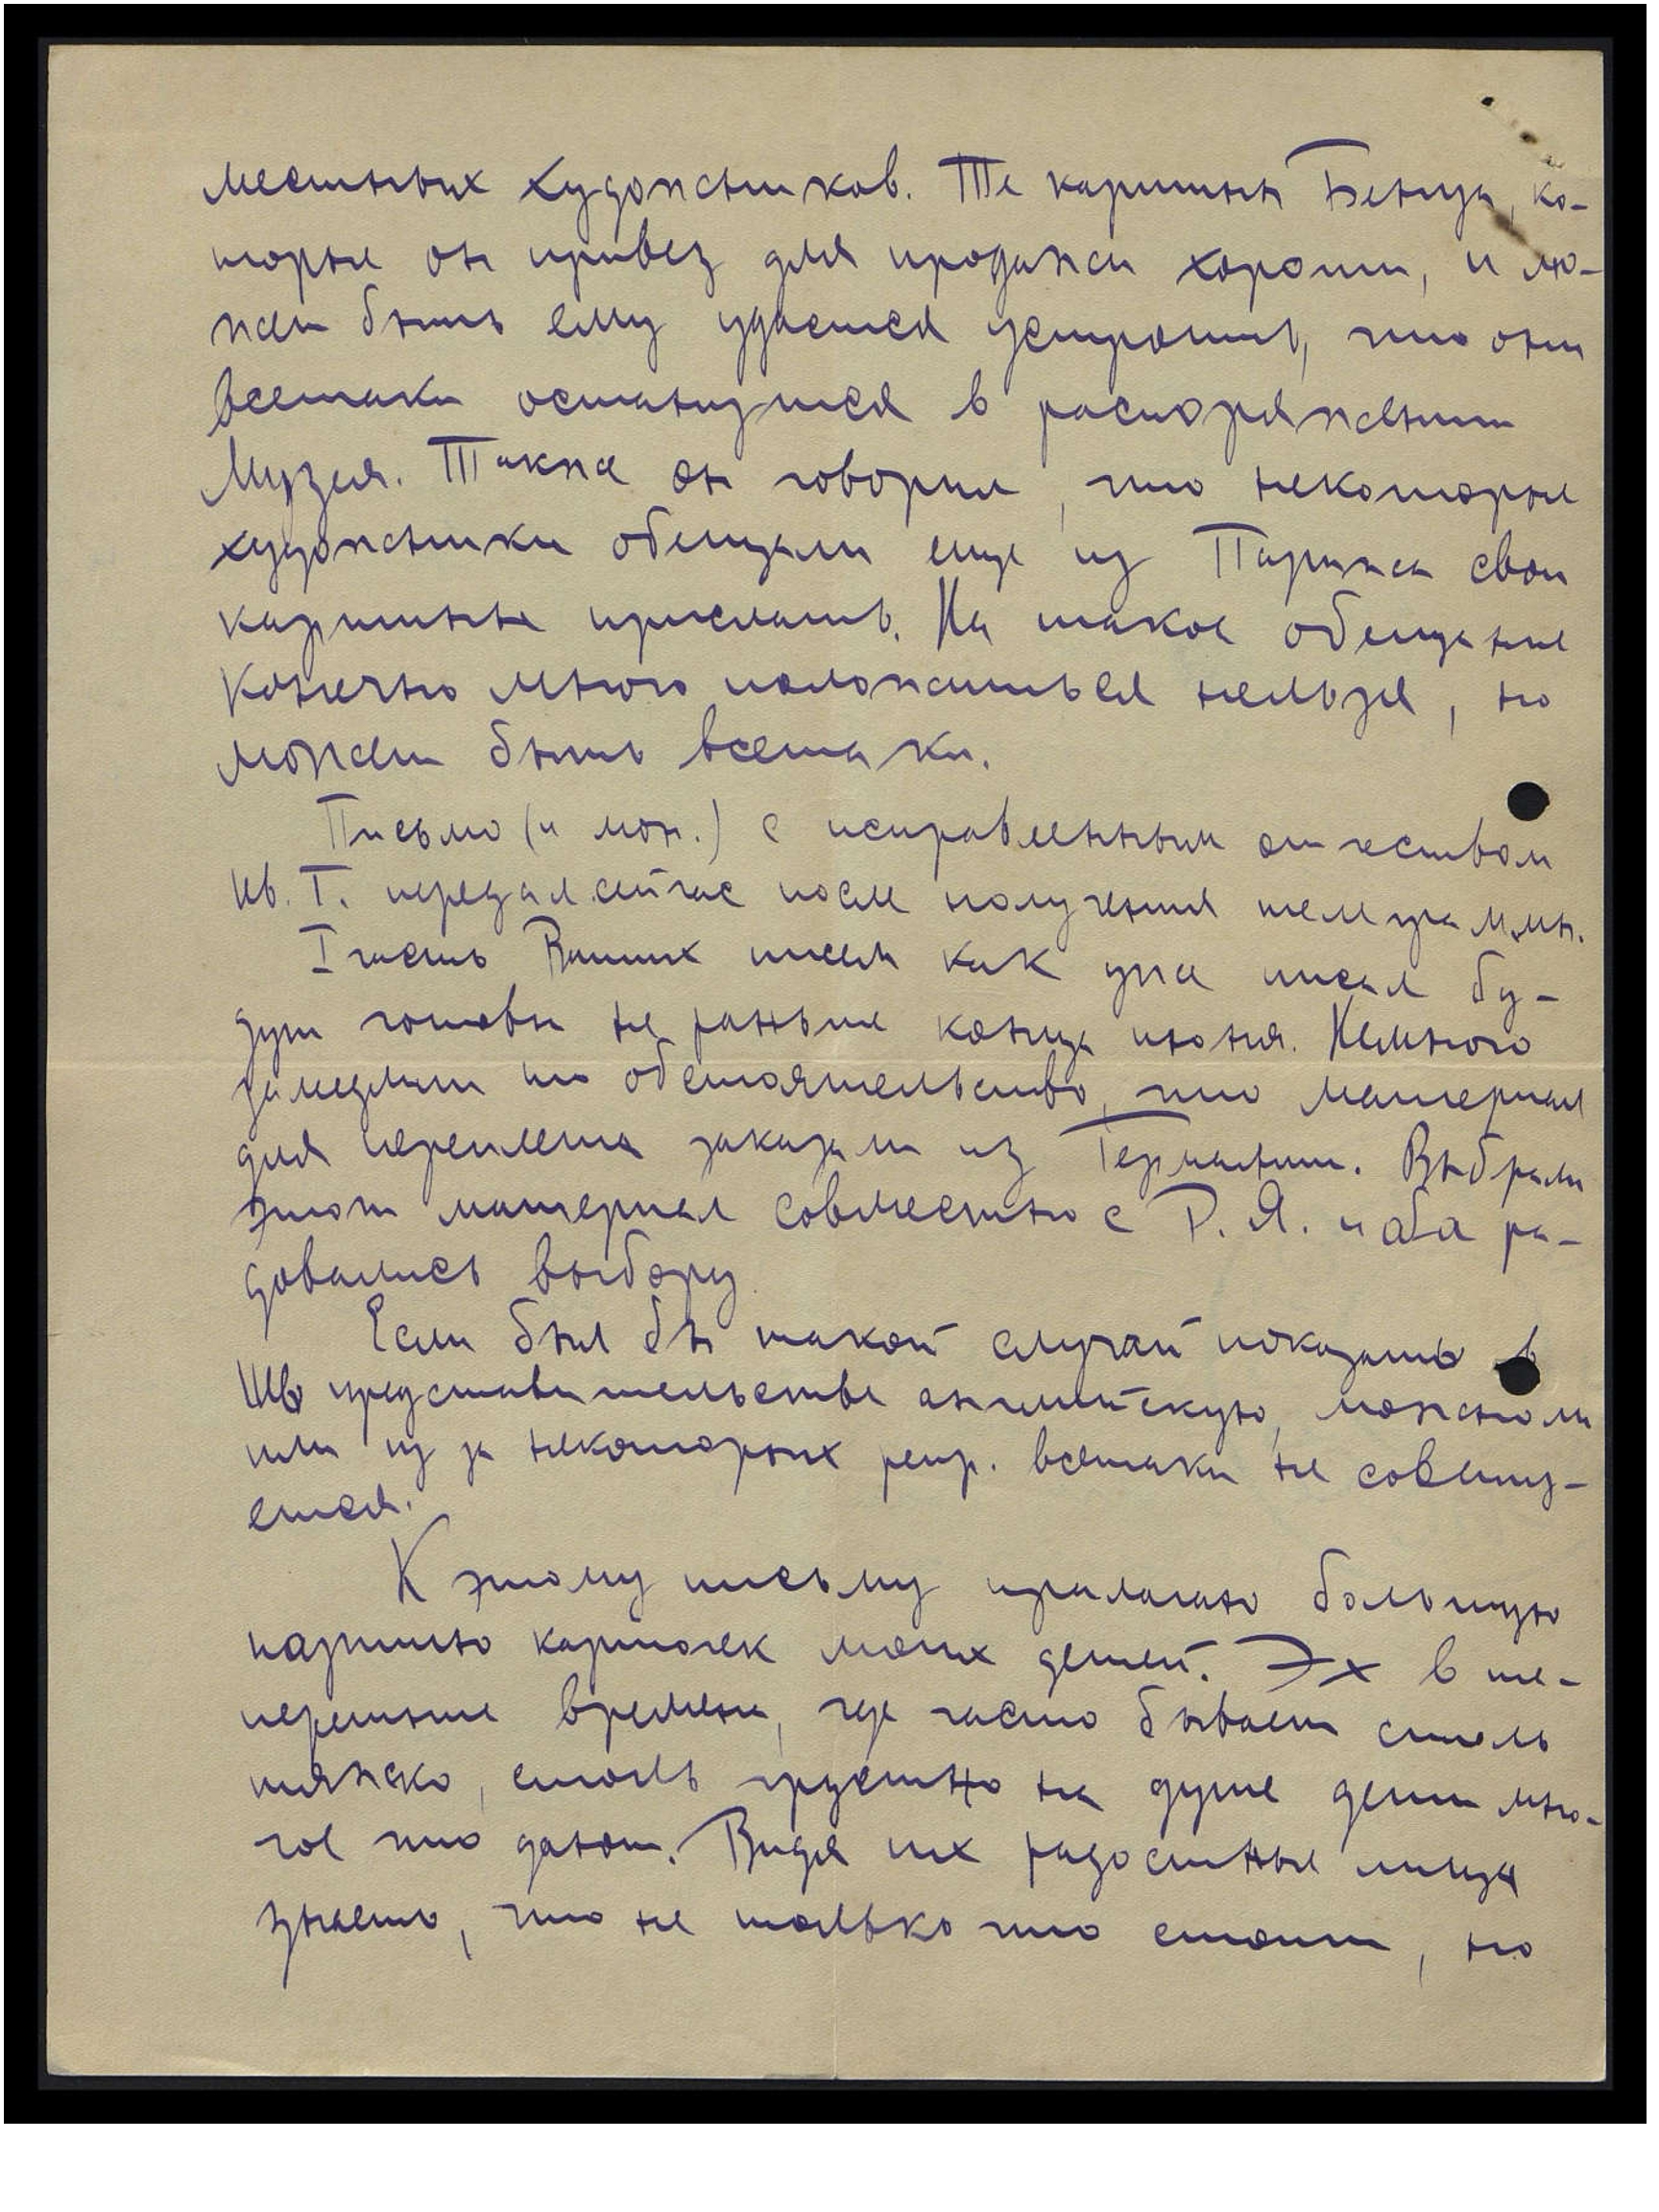 местных художников. Те картины Бенуа, ко-
торые он привез для продажи хороши, и мо-
жет быть ему удастся устроить, что они
всетаки останутся в распоряжении
Музея. Также он говорил, что некоторые
художники обещали еще из Парижа свои
картины прислать. На такое обещание
конечно много положиться нельзя, но
может быть всетаки.
Письмо (и мон.) с исправленным отчеством
Ив. Г. передал сейчас после получения телеграммы.
I часть Ваших писем как уже писал бу-
дут готовы не раньше конца июня. Немного
замедлили то обстоятельство, что материал
для переплета заказали из Германии. Выбрали
этот материал совместно с Р. Я. и оба ра-
довались выбору.
Если был бы такой случай показать в
Шв представительстве английскую, можно ли
или из за некоторых репр. всетаки не совету-
ется.
К этому письму прилагаю большую
партию карточек моих детей. Эх в те-
перешние времена, где часто бывает столь
тяжко, столь грустно на душе дети мно-
гое что дают. Видя их радостные лица
знаешь, что не только что стоит, но